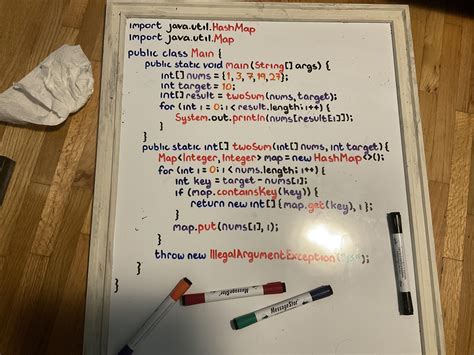 import java.util.HashMap
import java.util.Map
public class Main {
public static void main(String[] args) {
int[] nums = {1,3,7,19,27};
int target = 10;
int[] result = twoSum(nums, target);
for (int i = 0; i < result.length; i++) {
System.out.println(nums[result[i]]);
}
}
public static int[] twoSum(int[] nums, int target) {
Map<Integer, Integer> map = new HashMap<>();
for (int i = 0; i < nums.length; i++) {
int key = target - nums[i];
if (map.containsKey(key)) {
return new int[] {map.get(key), i};
}
map.put(nums[i], i);
}
throw new IllegalArgumentException(
}
}
MessageStar
MessageStar